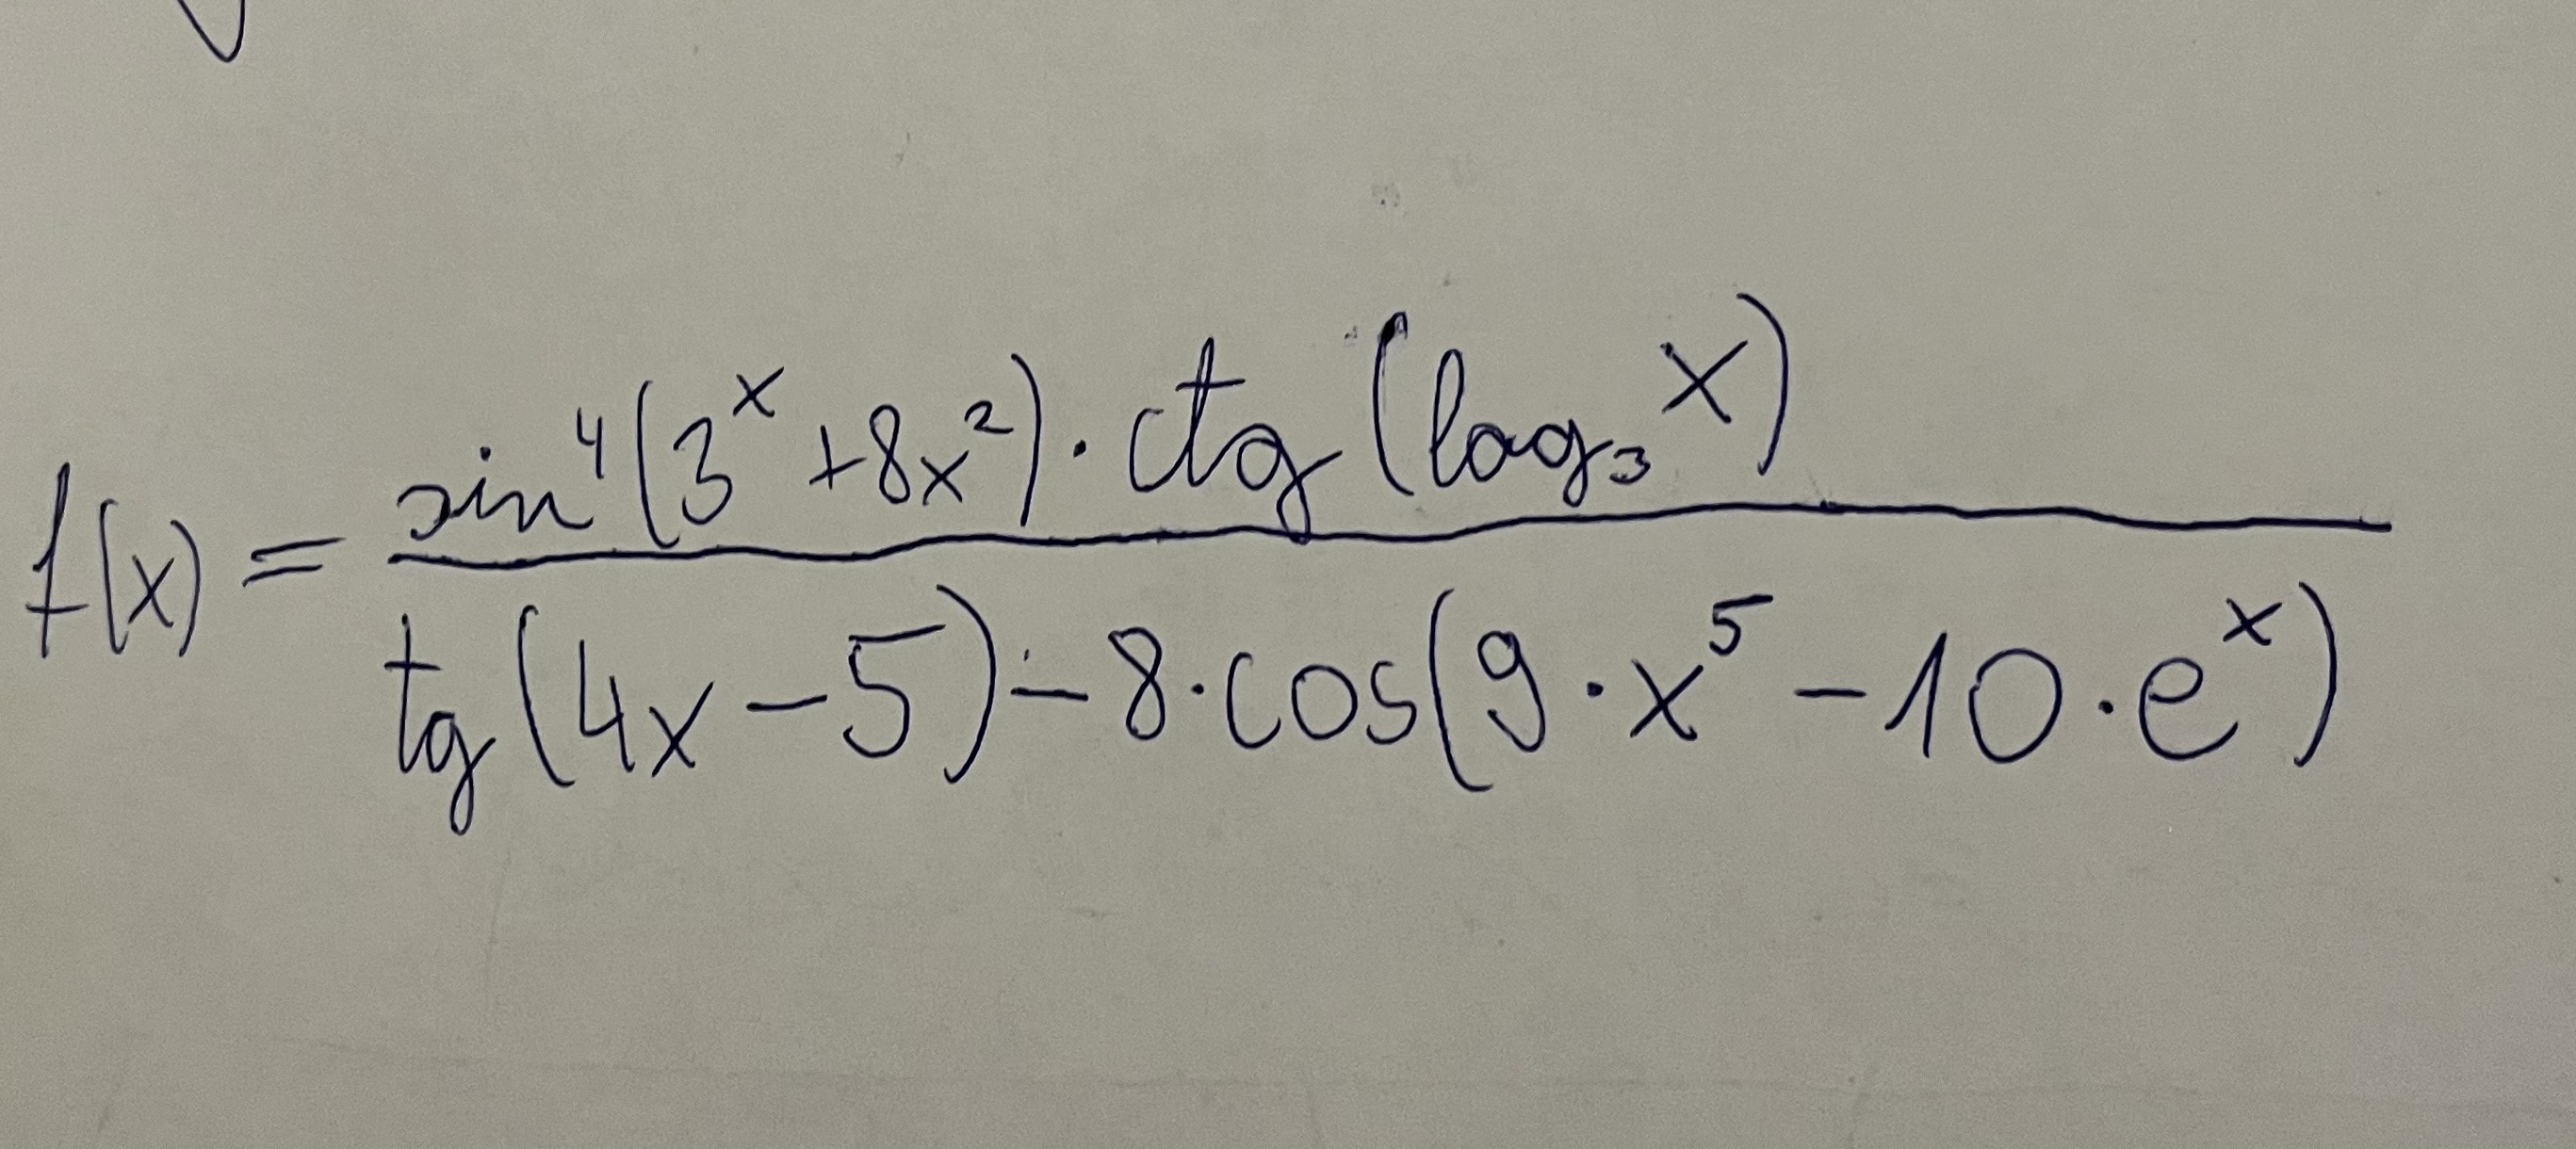 f(x) = \frac{sin^4(3^x + 8x^2) · ctg(log_3 x)}{tg(4x - 5) - 8 · cos(9 · x^5 - 10 · e^x)}